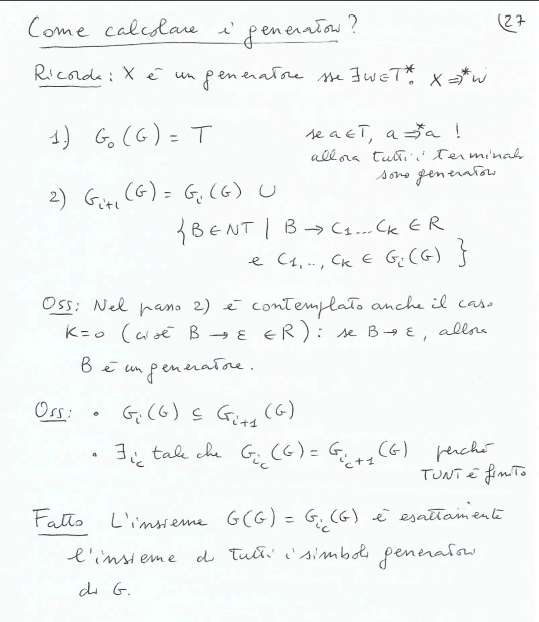 Come calcolare i generatori? (27
Ricorda: X è un generatore sse ∃w∈T*. X ⇒* w
1.) G₀(G) = T se a∈T, a ⇒* a !
allora tutti i terminali
sono generatori
2) Gᵢ₊₁(G) = Gᵢ(G) ∪
{B∈NT | B → C₁...Cₖ ∈ R
e C₁,.., Cₖ ∈ Gᵢ(G) }
Oss: Nel passo 2) è contemplato anche il caso
K=0 (cioè B → ε ∈ R): se B → ε, allora
B è un generatore.
Oss: • Gᵢ(G) ⊆ Gᵢ₊₁(G)
• ∃ i_c tale che G_{i_c}(G) = G_{i_c+1}(G) perché
T∪NT è finito
Fatto L'insieme G(G) = G_{i_c}(G) è esattamente
l'insieme di tutti i simboli generatori
di G.